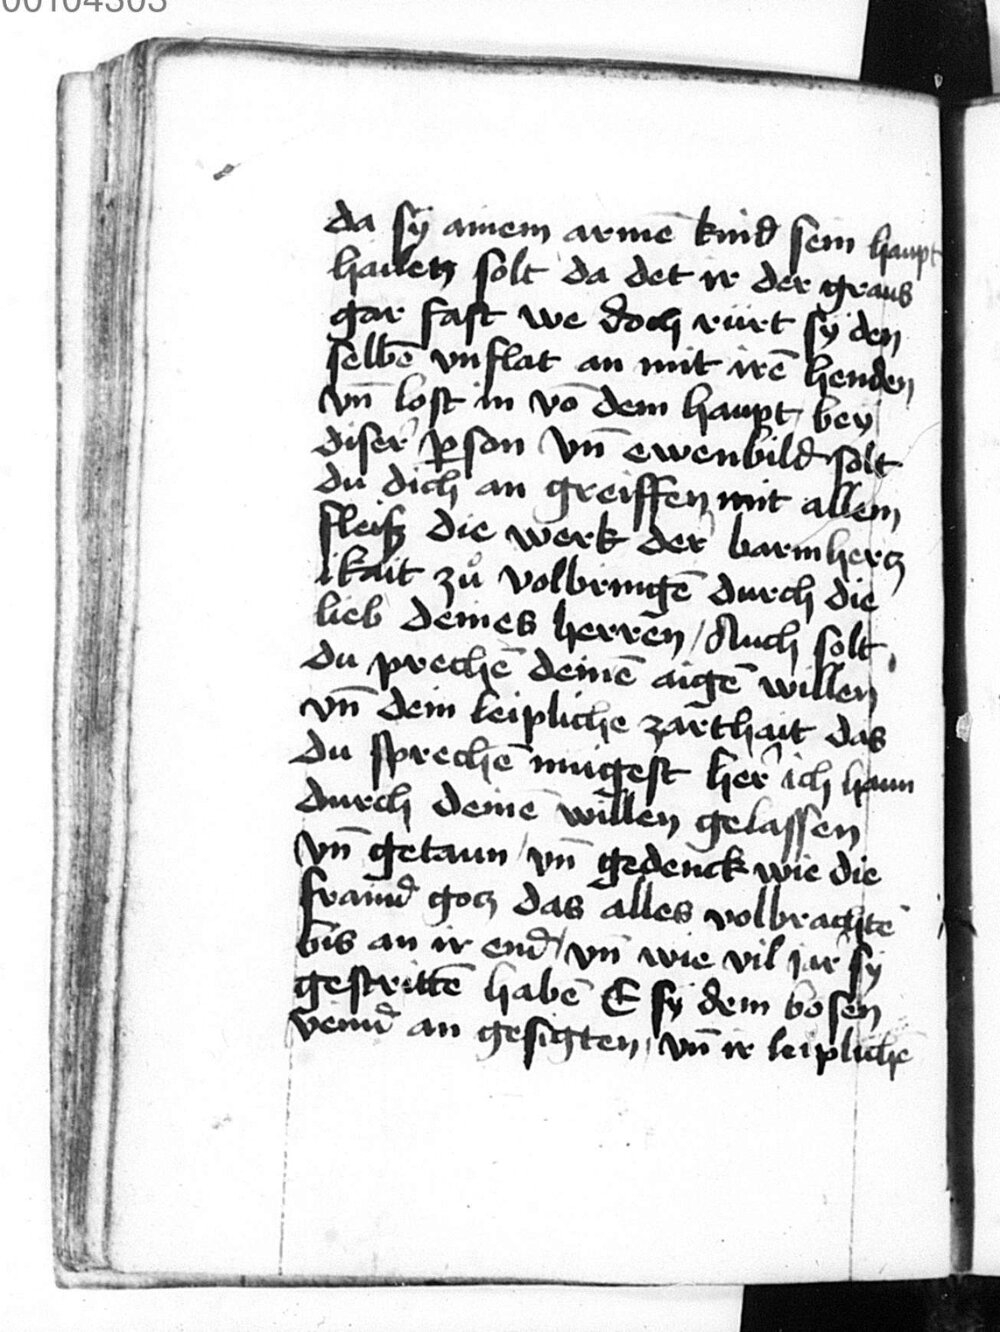 00104303
da sÿ ainem arme̅ kind sein haupt
hailen solt da det ir der graus
gar fast we doch rürt sÿ den
selbe̅ vnflat an mit ire̅ henden
vn̅ lost in vo̅ dem haupt bey
diser ꝑson vn̅ ewenbild solt
du dich an greiffen mit allem
fleiß die werk der barmhercz
ikait zů volbringe̅ durch die
lieb deines herren / Auch solt
du preche̅ deine̅ aige̅ willen
vn̅ dein leipliche zarthait das
du spreche̅ mügest her ich haun
durch deine̅ willen gelassen
vn̅ getaun / vn̅ gedenck wie die
fraind gocz das alles volbrachte̅
bis an ir end / vn̅ wie vil jar sy
gestritte̅ habe̅ E sÿ dem bosen
veind an gesigten / vn̅ ir leipliche̅